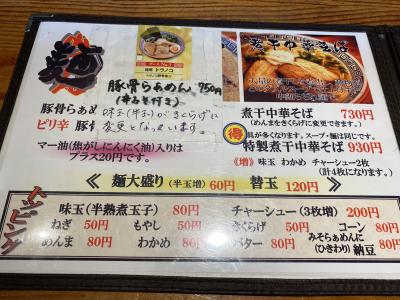 豚骨らぁめん 750円
(辛みそ付き)
味玉(半玉)がきくらげに
変更となっています。
豚骨らぁめ
ピリ辛 豚
マー油(焦がしにんにく油)入りは
プラス20円です。
煮干中華そば
煮干中華そば 730円
(めんまをきくらげに変更できます。)
得
具が多くなります。スープ・麺は同じです。
特製煮干中華そば 930円
《増》 味玉 わかめ チャーシュー2枚
(計4枚になります。)
《 麺大盛り(半玉増) 60円 替玉 120円 》
トッピング
味玉(半熟煮玉子) 80円 チャーシュー(3枚増) 200円
ねぎ 50円 もやし 50円 きくらげ 50円 コーン 80円
めんま 80円 わかめ 80円 バター 80円 みそらぁめんに(ひきわり)納豆 80円